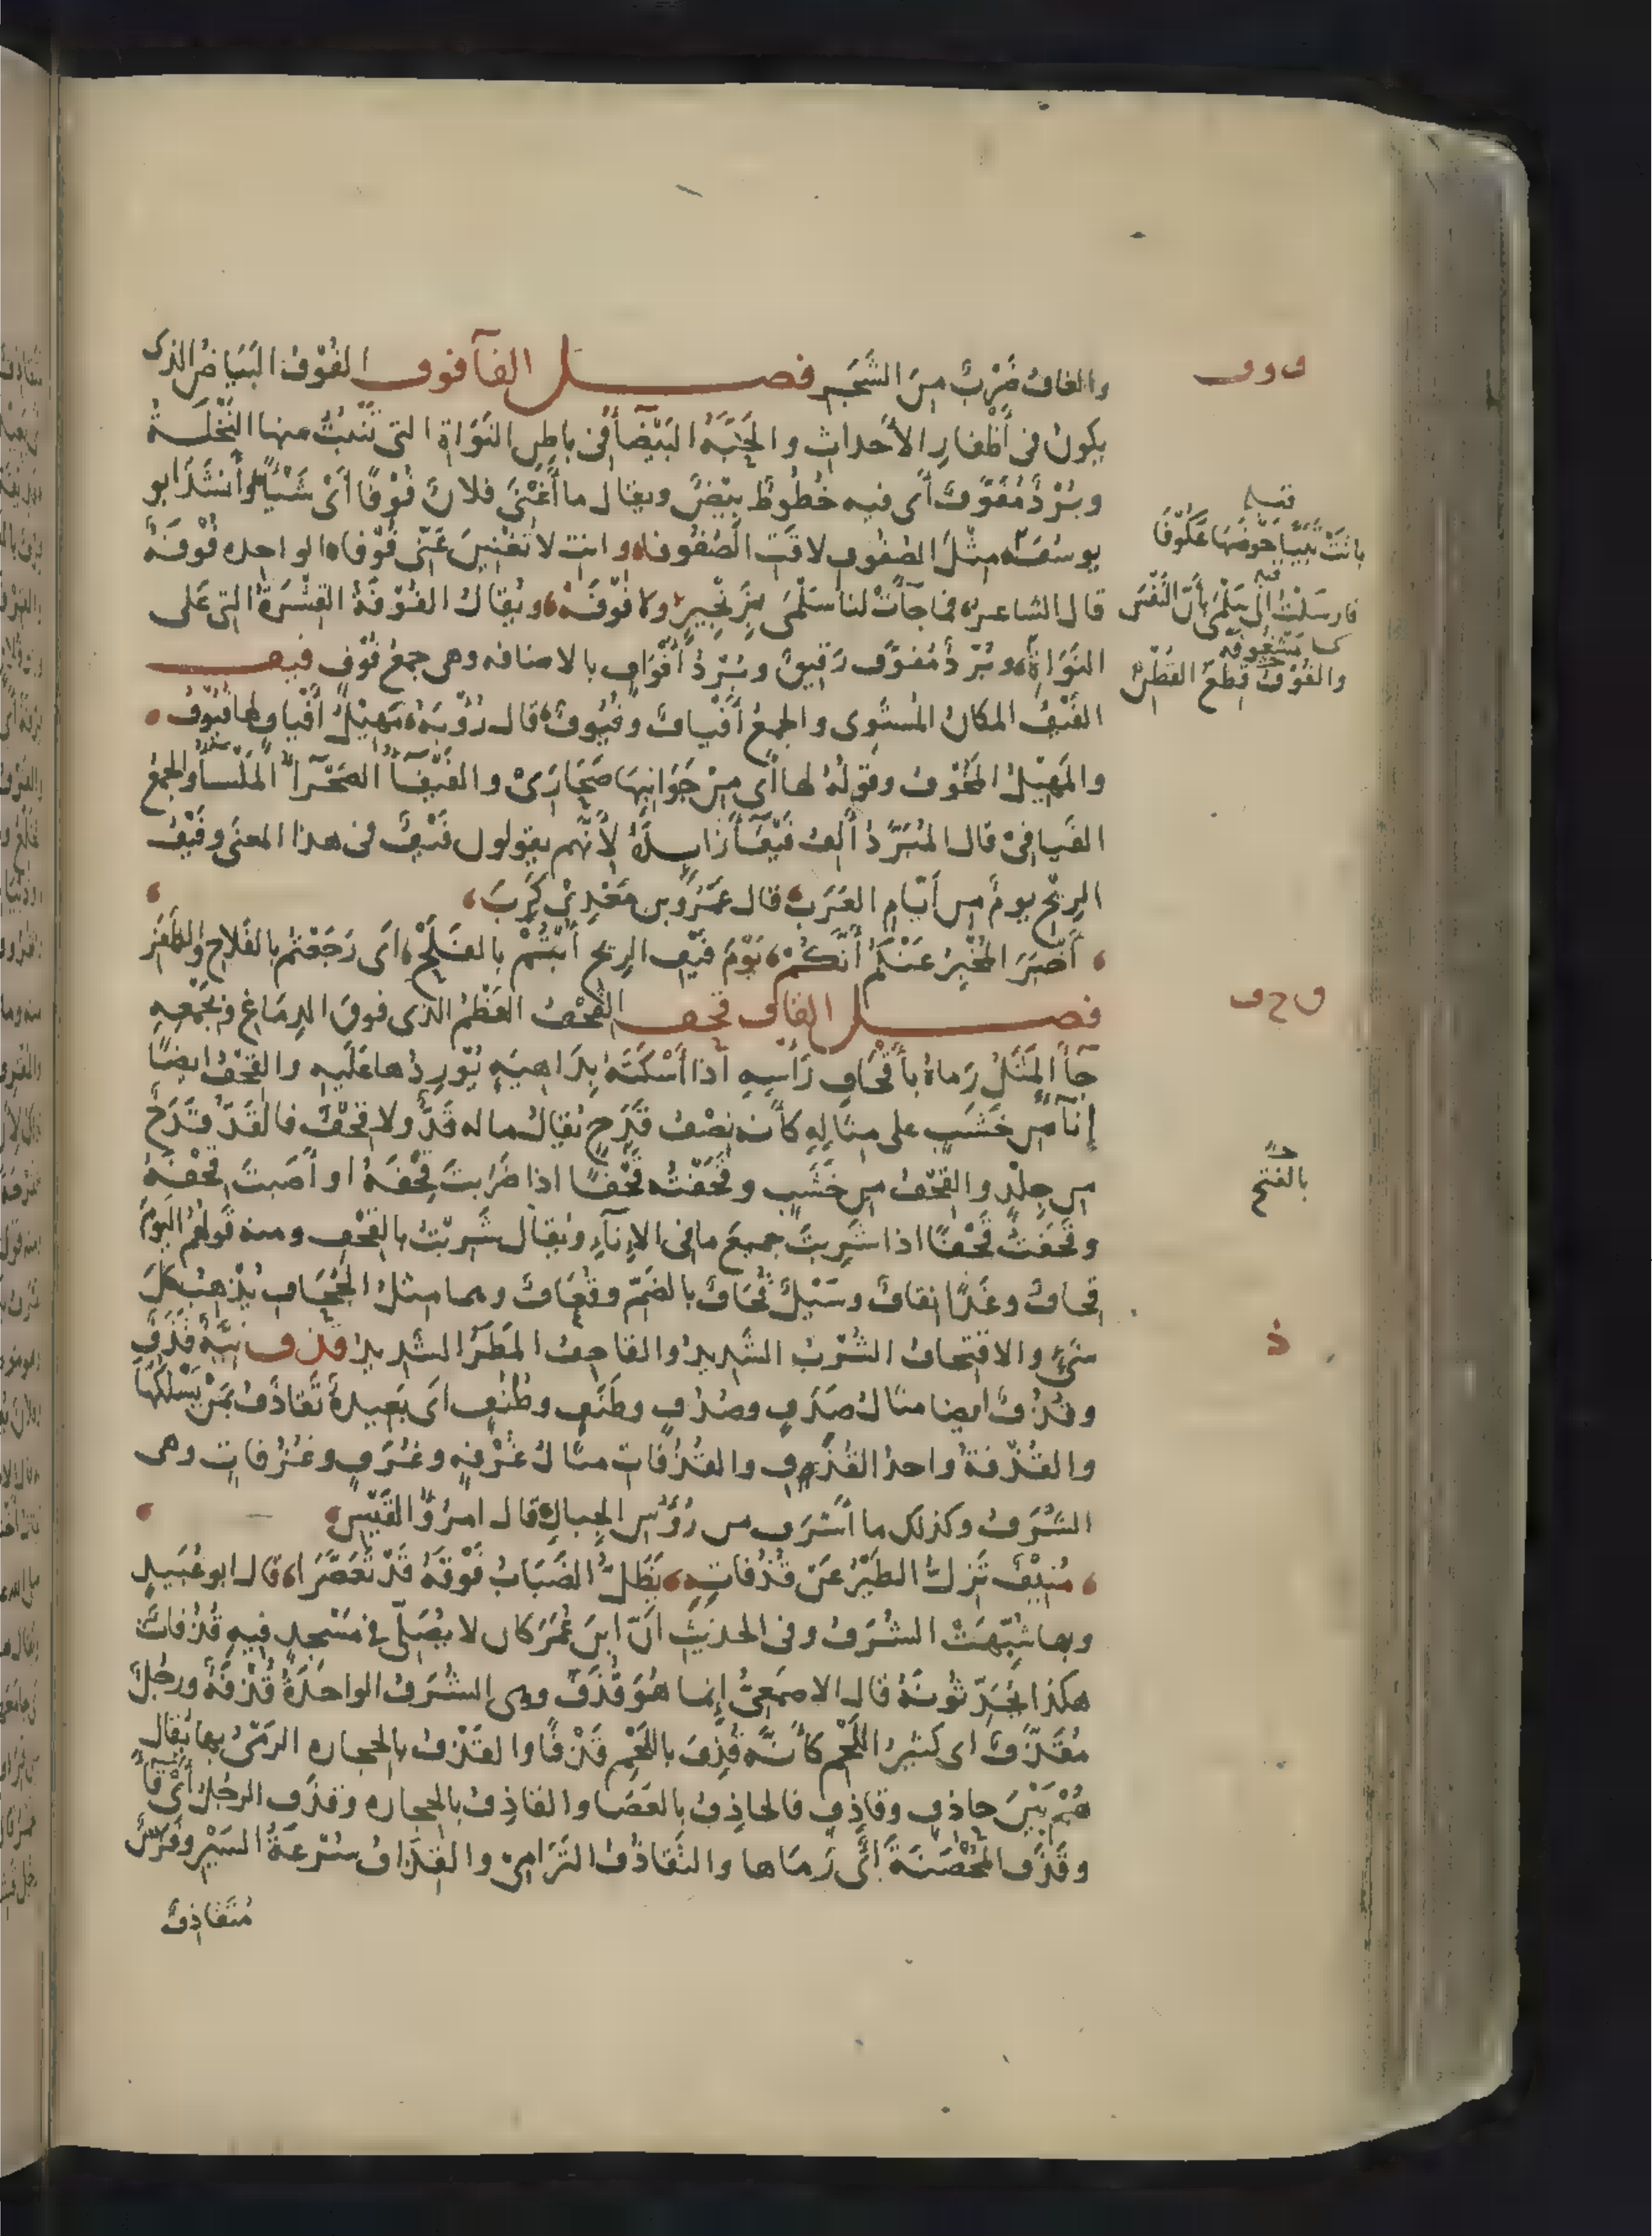 والغافُ ضَرْبٌ مِنَ الشَّجَرِ فصـــل الفآ فوف الفُوْفُ البَيَاضُ الذى
يكونُ فى أظْفارِ الأحداثِ والحَبَّةُ البَيْضآُ فى باطِنِ النَوَاةِ التى تَنْبُتُ منها النَّخْلَةُ
وبُرْدٌ مُفَوَّفٌ أى فيه خُطُوطٌ بِيْضٌ ويقال ما أَغْنَى فلانٌ فُوْفًا أىْ شَيْئًا وأنشَدَ ابو
يوسُفَ مثْلَ الصُفُوفِ لاقَتِ الصُفُوفا وانتِ لا تُغْنِينَ عَنّى فُوْفاه الواحده فُوْفَةٌ
قال الشاعر فما جآءَتْ لنا سَلْمَى بِزِنْجِيرٍ ولا فُوْفَهْ ويُقالُ الفُوْفَةُ القِشْرَةُ التى عَلى
النَوَاةِ وبُرْدٌ مُفَوَّفٌ رَقيقٌ وبُرْدُ أَفْوَافٍ بالاضافه وهى جمعُ فُوْفٍ فيـف
الفَيْفُ المكانُ المُسْتَوِى والجمعُ أَفْيافٌ وفُيُوفٌ قال رُؤْبَةُ مَهِيْلُ أَفْيافٍ لها فُيُوفُ
والمَهِيْلُ المَخُوْفُ وقولُهُ لها أى مِنْ جَوَانِبِها صَحَارَىْ والفَيْفآُ الصَحْرآُ المَلْسآُ والجمعُ
الفَيافِىْ قال المُبَرَّدُ أَلِفُ فَيْفآَ زايدةٌ لأنَّهم يقولون فَيْفٌ فى هذا المعنَى وفَيْفُ
الرِيْحِ يومٌ من أيّامِ العَرَبِ قال عَمْرُو بن مَعْدِىْ كَرِبَ
أَخْبَرَ المُخْبِرُ عَنْكُمْ أَنَّكُمْ يَوْمَ فَيْفِ الرِيحِ أُبْتُمْ بالفَلَجْ اى رَجَعْتم بالفَلاحِ والظَفَر
فصـــل القاف قحف القِحْفُ العَظْمُ الذى فوقَ الدِمَاغِ وبجَمْعِهِ
جآَ المَثَلُ رَماهُ بأَقْحافِ رَأسِهِ اذا أسْكَتَهُ بِدَاهِيَةٍ يُوْرِدُها عَلَيهِ والقِحْفُ ايضًا
إنآٌ من خَشَبٍ على مِثالِهِ كأنه نِصْفُ قَدَحٍ يُقالُ ما له قَدٌّ ولا قِحْفٌ فالقَدُّ قَدَحٌ
من جِلْدٍ والقِحْفُ من خَشَبٍ وقَحَفْتُه قَحْفًا اذا ضَرَبتَ قِحْفَهُ او أصَبتَ قِحْفَهُ
وقَحَفْتُ قَحْفًا اذا شَرِبتَ جميعَ ما فى الاِنآءِ ويُقال شَرِبْتُ بالقِحْفِ ومنه قولُهُمُ اليَوْمَ
قِحافٌ وغَدًا نِقافٌ وسَيْلٌ قُحَافٌ بالضَمِّ وقُعَافٌ وهما مثلُ الجُحَافِ يُذْهِبُ بكلِّ
شىءٍ والاقتِحافُ الشُرْبُ الشديدُ والقاحِفُ المَطَرُ الشديدُ قذف نِيَّةٌ قَذَفٌ
وقُذُفٌ ايضا مثالُ صَدَفٍ وصُدُفٍ وطَنَفٍ وطُنُفٍ اى بَعِيدةٌ تَقاذَفُ بمَنْ يَسْلُكُها
والقُذْفةُ واحدُ القُذَفِ والقُذُفاتِ مثالُ غُرْفَةٍ وغُرَفٍ وغُرُفاتٍ وهى
الشُرَفُ وكذلك ما أَشرَفَ من رُؤُسِ الجبالِ قال امرُؤُ القَيْسِ
مُنِيْفٌ تَزِلُّ الطَيْرُ عَنْ قُذُفاتِهِ يَظَلُّ الضَبَابُ فَوْقَهُ قَدْ تَعَصَّرَا قال ابو عُبَيدٍ
وبها شُبِّهَتْ الشُرَفُ وفى الحديْثِ انّ ابنَ عُمَرَ كان لا يُصَلِّى فى مَسْجِدٍ فيهِ قُذُفاتٌ
هكذا يُحَدِّثُونَهُ قال الاصمَعِىُّ إنما هُوَ قُذَفٌ وهى الشُرَفُ الواحدةُ قُذْفَةٌ ورجُلٌ
مُقَذَّفٌ اى كَثيرُ اللَّحْمِ كأنَّه قُذِفَ باللَّحْمِ قَذْفًا والقَذْفُ بالحجاره الرَمْىُ بها يُقال
هُمْ بَيْنَ حاذفٍ وقاذفٍ فالحاذِفُ بالعَصَا والقاذِفُ بالحِجاره وقذَفَ الرجُلُ أىْ قآَ
وقَذَفَ المُحْصَنَةَ اىْ رَمَاها والتَقاذُفُ التَرَامِىْ والقِذَافُ سُرْعَةُ السَيْرِ وفَرَسٌ
مُتَقاذِفٌ
ف و ف
باتَتْ تُبَيّا حَوْضَها عَكُوْفًا
فارسَلْتُ الى سَلْمَى بأنّ النَفْسَ
مَشْغُوفَه
والفُوْفُ قِطَعُ القُطْنِ
ق ح ف
بالفتح
ذ